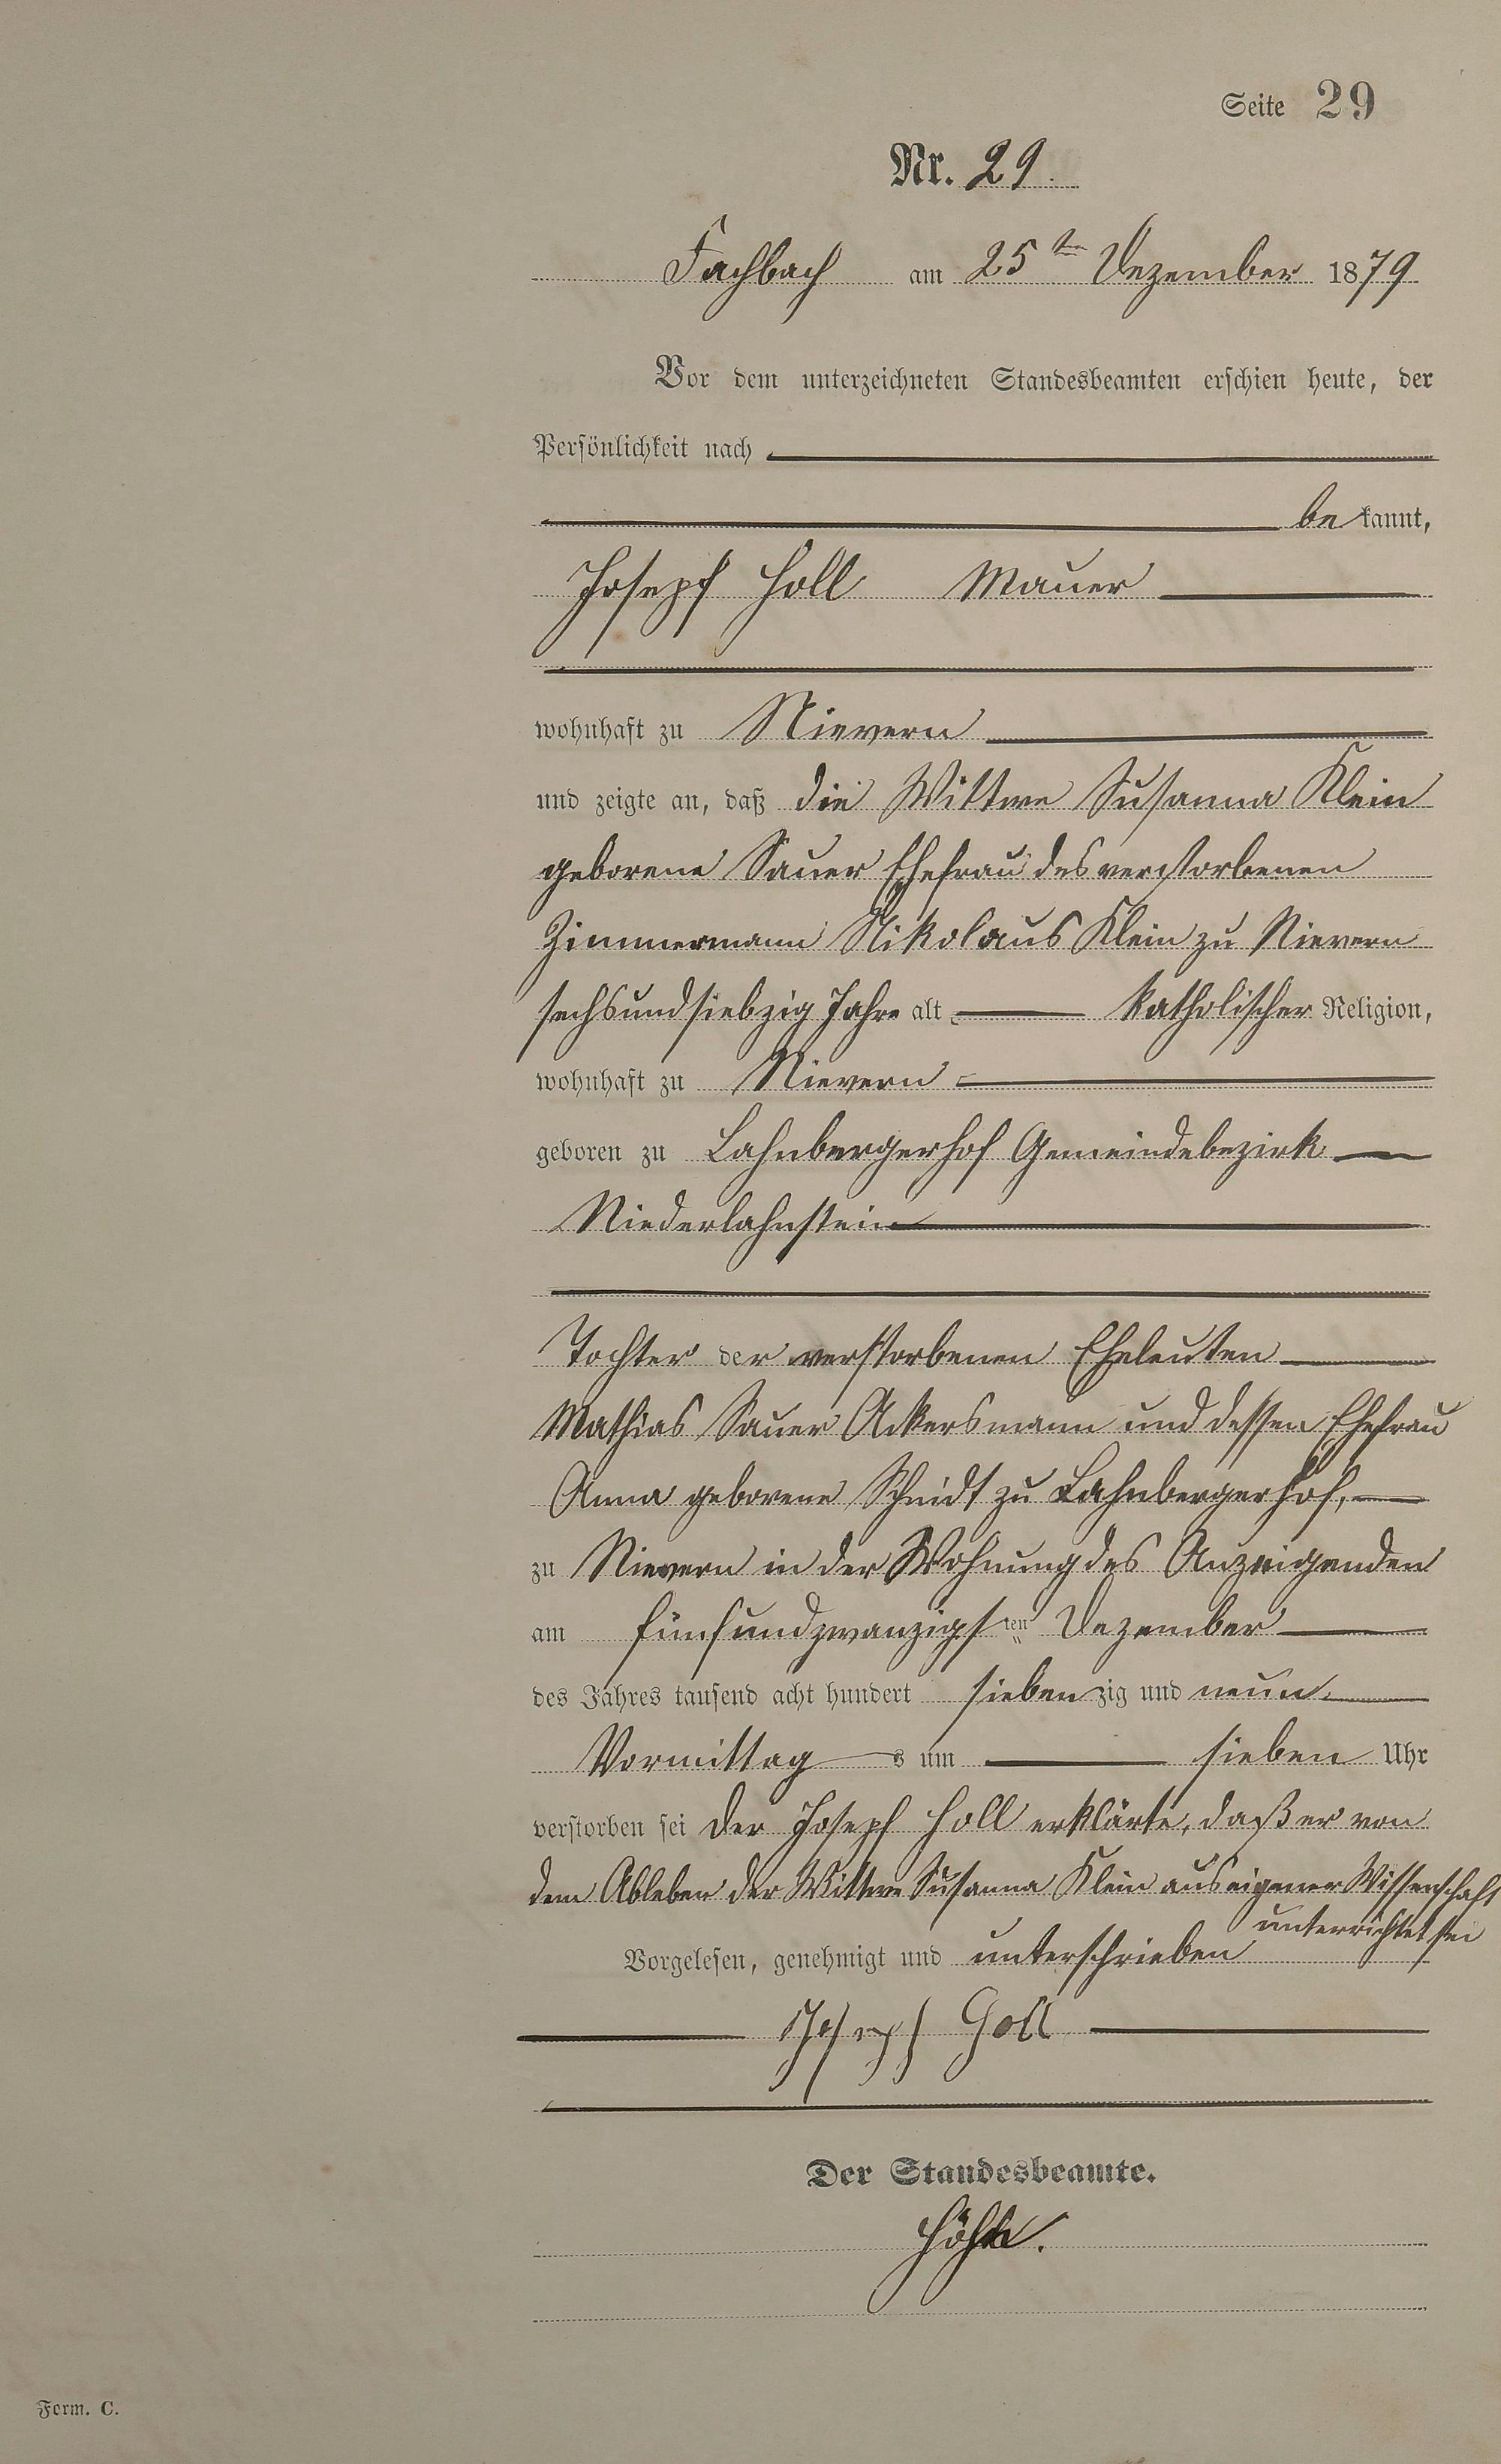 Seite 29
Nr. 29.
Fachbach am 25ten Dezember 1879
Vor dem unterzeichneten Standesbeamten erschien heute, der
Persönlichkeit nach
bekannt,
Joseph Holl Mauer
wohnhaft zu Nievern
und zeigte an, daß die Wittwe Susanna Klein
geborene Sauer Ehefrau des verstorbenen
Zimmermann Nikolaus Klein zu Nievern
sechsundsiebzig Jahre alt, katholischer Religion,
wohnhaft zu Nievern
geboren zu Lahnbergerhof Gemeindebezirk
Niederlahnstein
Tochter der verstorbenen Eheleuten
Mathias Sauer Ackersmann und dessen Ehefrau
Anna geborene Scheidt zu Lahnbergerhof,
zu Nievern in der Wohnung des Anzeigenden
am fünfundzwanzigsten Dezember
des Jahres tausend acht hundert siebenzig und neun
Vormittags um sieben Uhr
verstorben sei der Joseph Holl erklärte, daß er von
dem Ableben der Wittwe Susanna Klein aus eigener Wissenschaft
unterrichtet sei
Vorgelesen, genehmigt und unterschrieben
Joseph Holl
Der Standesbeamte.
Form. C.